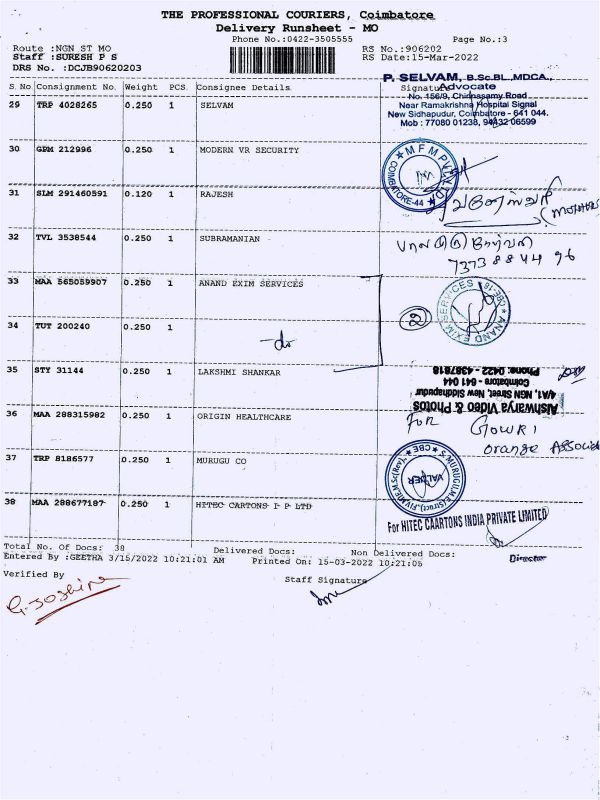 THE PROFESSIONAL COURIERS, Coimbatore
Delivery Runsheet - MO
Phone No.:0422-3505555 Page No.:3
Route :NGN ST MO RS No.:906202
Staff :SURESH P S RS Date:15-Mar-2022
DRS No. :DCJB90620203
P. SELVAM, B.Sc.BL.,MDCA.,
S.No Consignment No. Weight PCS Consignee Details Signature
Advocate
No. 156/9, Chinnasamy Road
Near Ramakrishna Hospital Signal
New Sidhapudur, Coimbatore - 641 044.
Mob : 77080 01238, 94432 06599
29 TRP 4028265 0.250 1 SELVAM
30 GPM 212996 0.250 1 MODERN VR SECURITY
COIMBATORE-44
31 SLM 291460591 0.120 1 RAJESH
(MOTHER)
32 TVL 3538544 0.250 1 SUBRAMANIAN
73738 844 96
33 MAA 565059907 0.250 1 ANAND EXIM SERVICES
2
ANAND EXIM SERVICES CBE-18
34 TUT 200240 0.250 1
-do
35 STY 31144 0.250 1 LAKSHMI SHANKAR
Aishwarya Video & Photos
4/A1, NGN Street, New Siddhapudur
Coimbatore - 641 044
Phone: 0422 - 4387818
36 MAA 288315982 0.250 1 ORIGIN HEALTHCARE
For GOWRI
orange
37 TRP 8186577 0.250 1 MURUGU CO
VALUER
CBE
38 MAA 288677187 0.250 1 HITEC CARTONS I P LTD
For HITEC CAARTONS INDIA PRIVATE LIMITED
Director
Total No. Of Docs: 38 Delivered Docs: Non Delivered Docs:
Entered By :GEETHA 3/15/2022 10:21:01 AM Printed On: 15-03-2022 10:21:05
Verified By Staff Signature